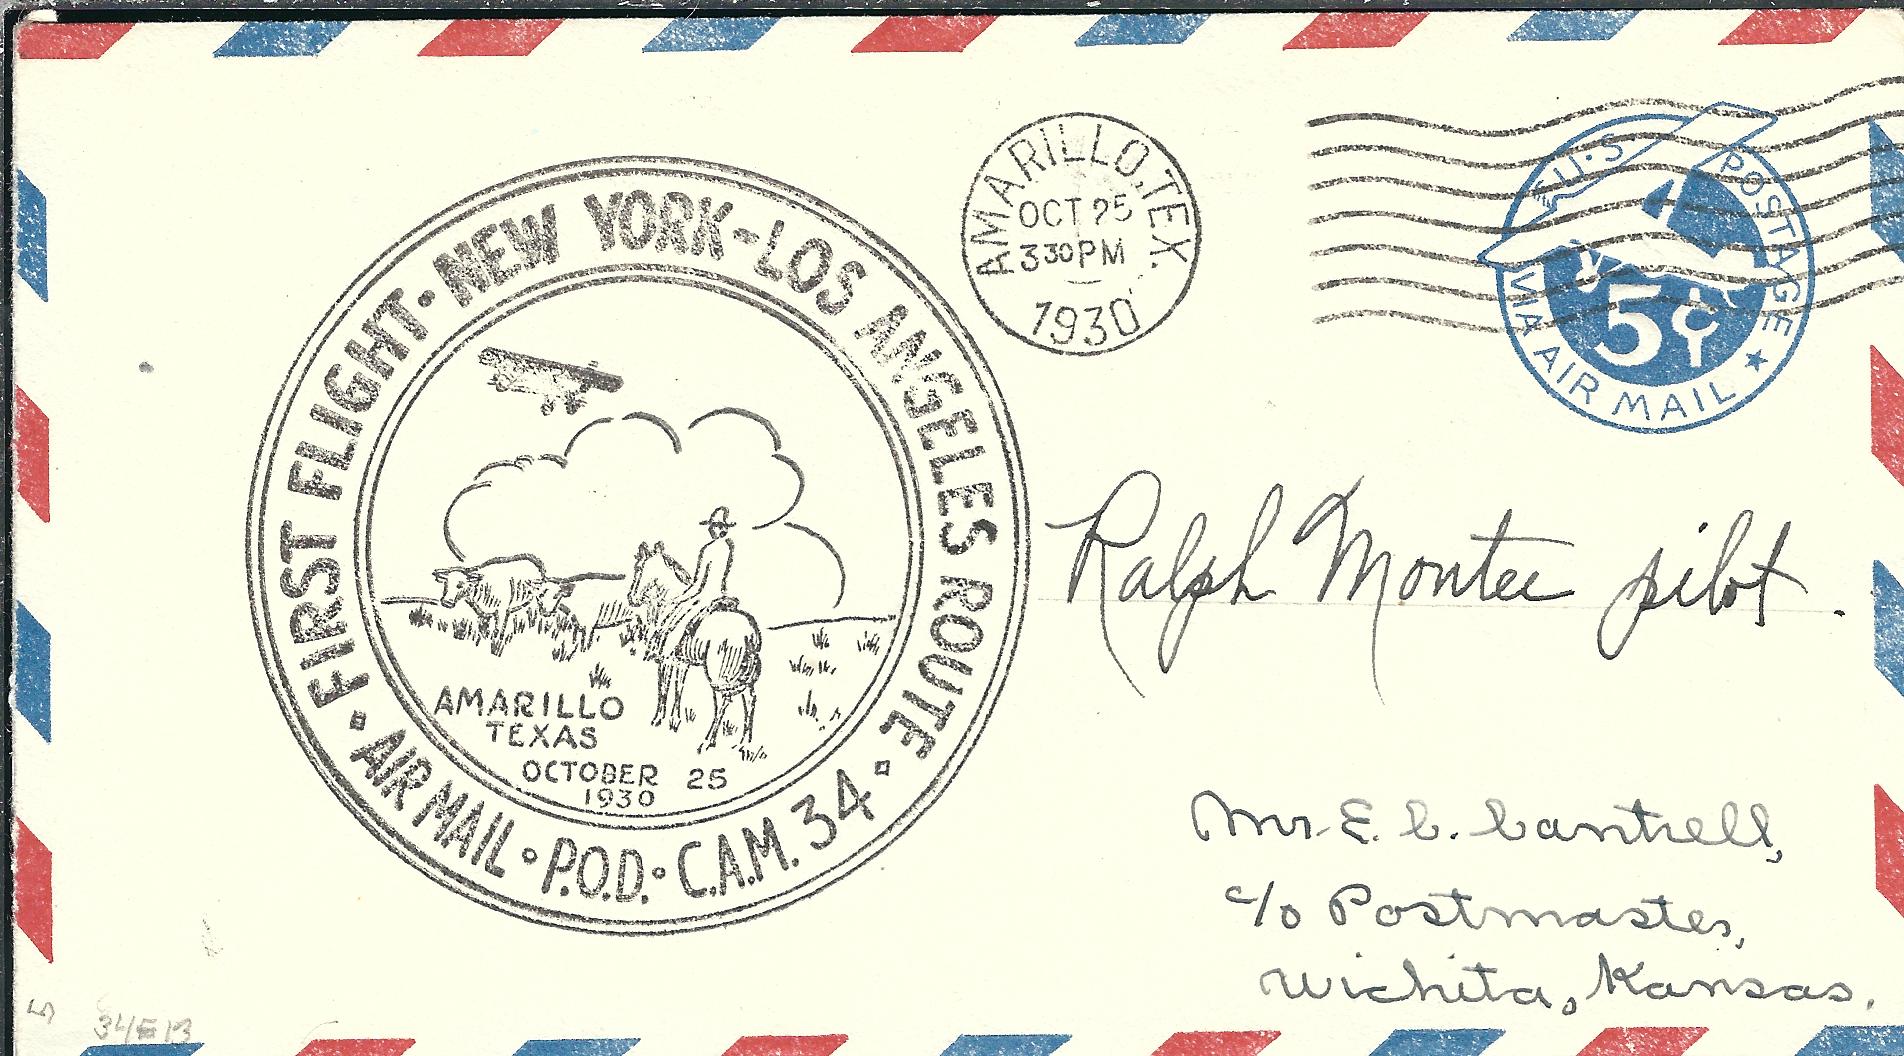 FIRST FLIGHT · NEW YORK - LOS ANGELES ROUTE
· AIR MAIL · P.O.D. · C.A.M. 34 ·
AMARILLO
TEXAS
OCTOBER 25
1930
AMARILLO, TEX.
OCT 25
330 PM
1930
U·S· POSTAGE
5¢
VIA AIR MAIL
Ralph Montee pilot.
Mr. E. C. Cantrell,
c/o Postmaster,
Wichita, Kansas.
5 34E13